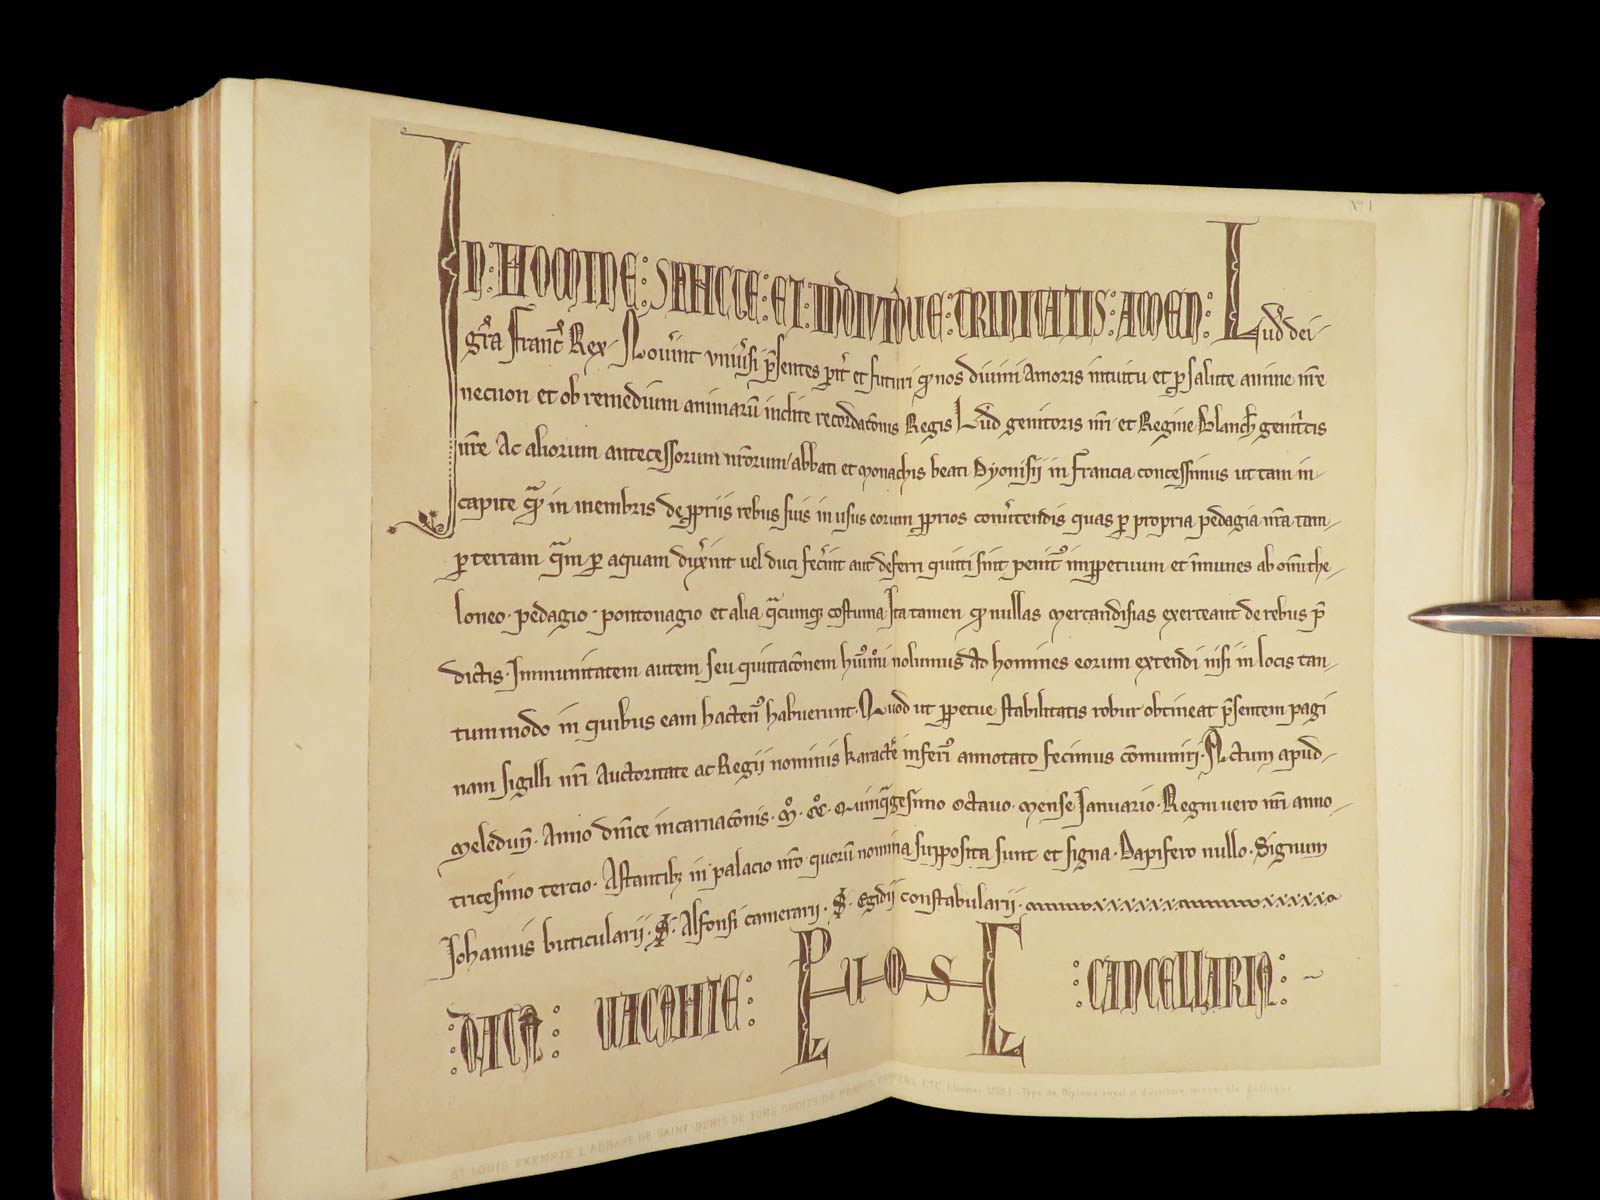 Nº 1
IN : NOMINE : SANCTE : ET : INDIVIDUE : TRINITATIS : AMEN : Lud̉ dei
gr̄a Franc̉ Rex. Nov̉int univ̉si p̄sentes pit̉ et futuri q̉ nos divini amoris intuitu et p salute anime nr̄e
necnon et ob remedium animarū inclite recordac̄onis Regis Lud̉ genitoris nr̄i et Regine Blanch̉ genit̉cis
nr̄e Ac aliorum antecessorum nr̄orum abbati et monachis beati Dyonisii in Francia concessimus ut tam in
capite q̃m in membris de ppriis rebus suis in usus eorum pprios conv̉tendis quas p propria pedagia nr̄a tam
p terram q̃m p aquam dux̉int vel duci fec̉int aut deferri quitti sint penit̉ imppetuum et īmunes ab om̄i the
loneo . pedagio . pontonagio et alia q̃cumq; costuma Ita tamen q̉ nullas mercandisias exerceant de rebus p̄
dictis . Immunitatem autem seu quittac̄onem huỉmōi nolumus ad homines eorum extendi nisi in locis tan
tummodo in quibus eam hacten̉ habuerunt . Quod ut ppetue stabilitatis robur obtineat p̄sentem pagi
nam sigilli nr̄i auctoritate ac Regii nominis karact̉e inferỉ annotato fecimus cōmuniri . Actum apud
meledun̄ . Anno dn̄ice incarnac̄onis . Mº . CCº . quinq̃gesimo octavo . mense Ianuario . Regni vero nr̄i anno
tricesimo tercio . Astantib; in palacio nr̄o quorū nomina supposita sunt et signa . Dapifero nullo . Signum
Iohannis buticularii . S . Alfonsi camerarii . S . Egidii constabularii .
: DATA : UACANTE : L U O S : CANCELLARIA :
ST LOUIS EXEMPTE L'ABBAYE DE SAINT-DENIS DE TOUS DROITS DE PÉAGES, TONNEAUX, ETC. (Janvier 1258). — Type de Diplôme royal et d'écriture minuscule gothique